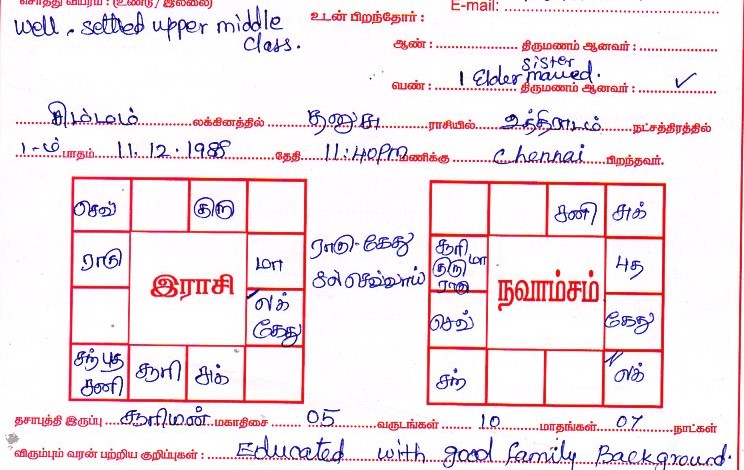 சொத்து விபரம் : (உண்டு / இல்லை)
E-mail:
Well settled upper middle class.
உடன் பிறந்தோர் :
ஆண் : திருமணம் ஆனவர் :
பெண் : 1 Elder sister married. திருமணம் ஆனவர் : ✓
சிம்மம் லக்கினத்தில் தனுசு ராசியில் உத்திராடம் நட்சத்திரத்தில்
1-ம் பாதம் 11.12.1988 தேதி 11:40PM மணிக்கு Chennai பிறந்தவர்.
செவ் குரு
ராகு மா
இராசி
லக் கேது
சந் புத சனி சூரி சுக்
ராகு-கேது
செவ்வாய்
சனி சுக்
சூரி மா குரு ராகு புத
நவாம்சம்
செவ் கேது
சந் லக்
தசாபுத்தி இருப்பு சூரியன் மகாதிசை 05 வருடங்கள் 10 மாதங்கள் 07 நாட்கள்
விரும்பும் வரன் பற்றிய குறிப்புகள் : Educated with good family Background.